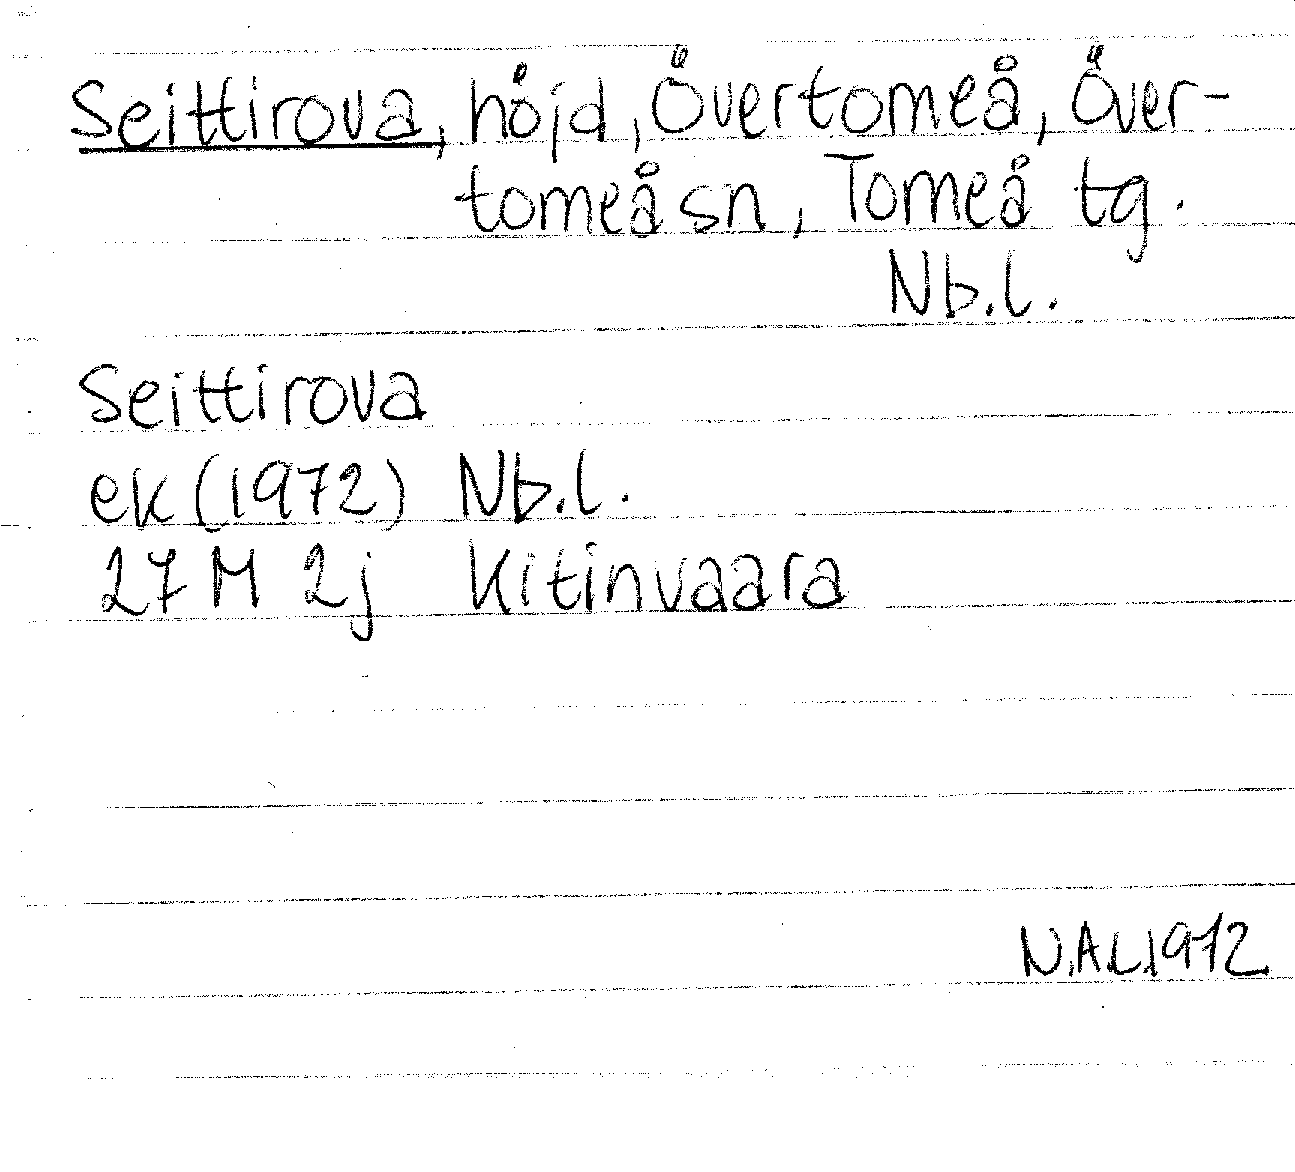 Seittirova, höjd, Övertorneå, Över-
torneå sn, Torneå tg.
Nb.l.
Seittirova
ek (1972) Nb.l.
27 M 2j Kitinvaara
N.A.L.1972